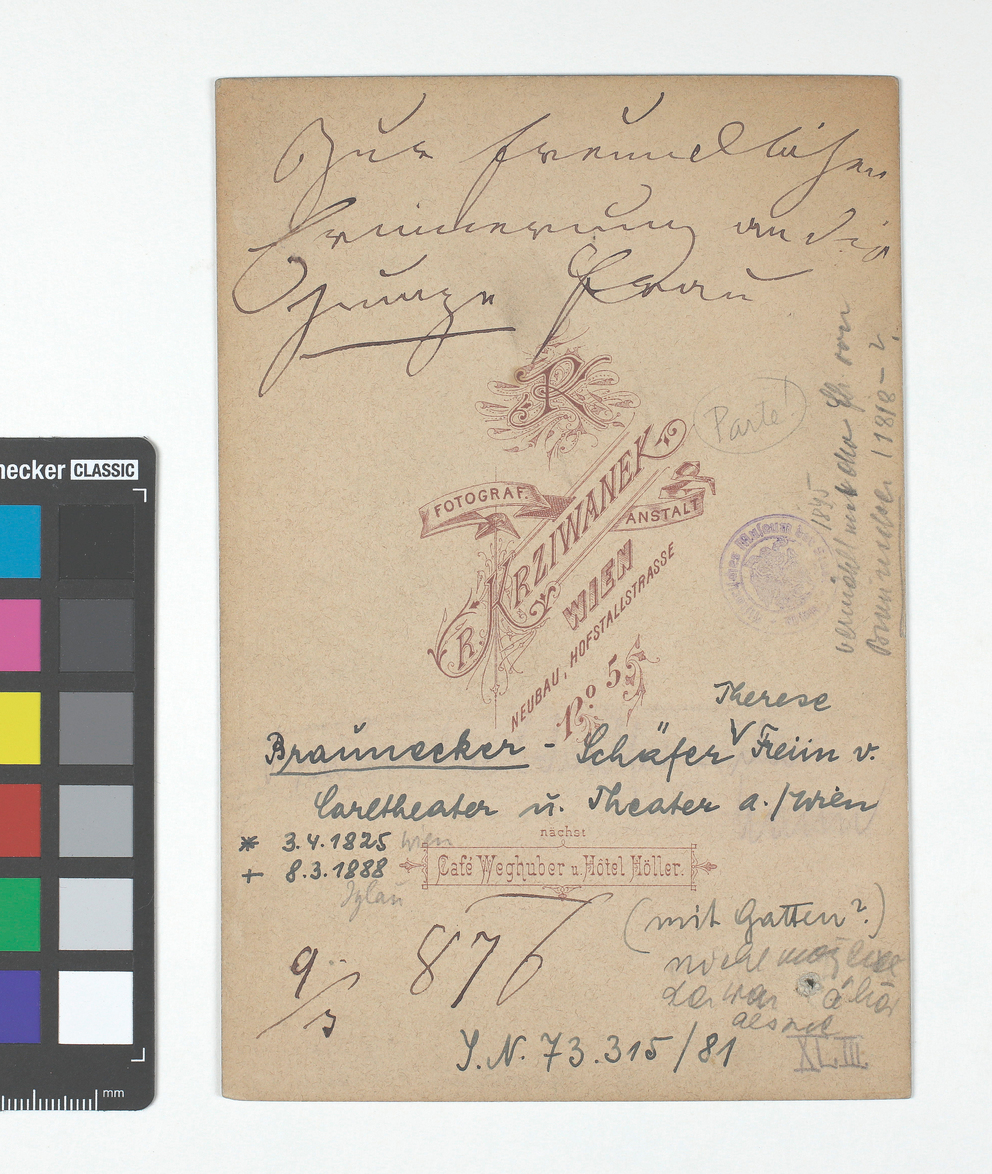 Zur freundlichen
Erinnerung an die
Frau
R
Parte!
FOTOGRAF. ANSTALT
R. KRZIWANEK
WIEN
NEUBAU, HOFSTALLSTRASSE
No 5
vermählt mit
1845
Therese
Braunecker - Schäfer V Freiin v.
Carltheater u. Theater a./Wien
* 3.4.1825 Wien
+ 8.3.1888
Iglau
nächst
Café Weghuber u. Hôtel Höller.
(mit Gatten?)
9/3 876
J.N. 73.315/81
XLIII.
necker CLASSIC
mm